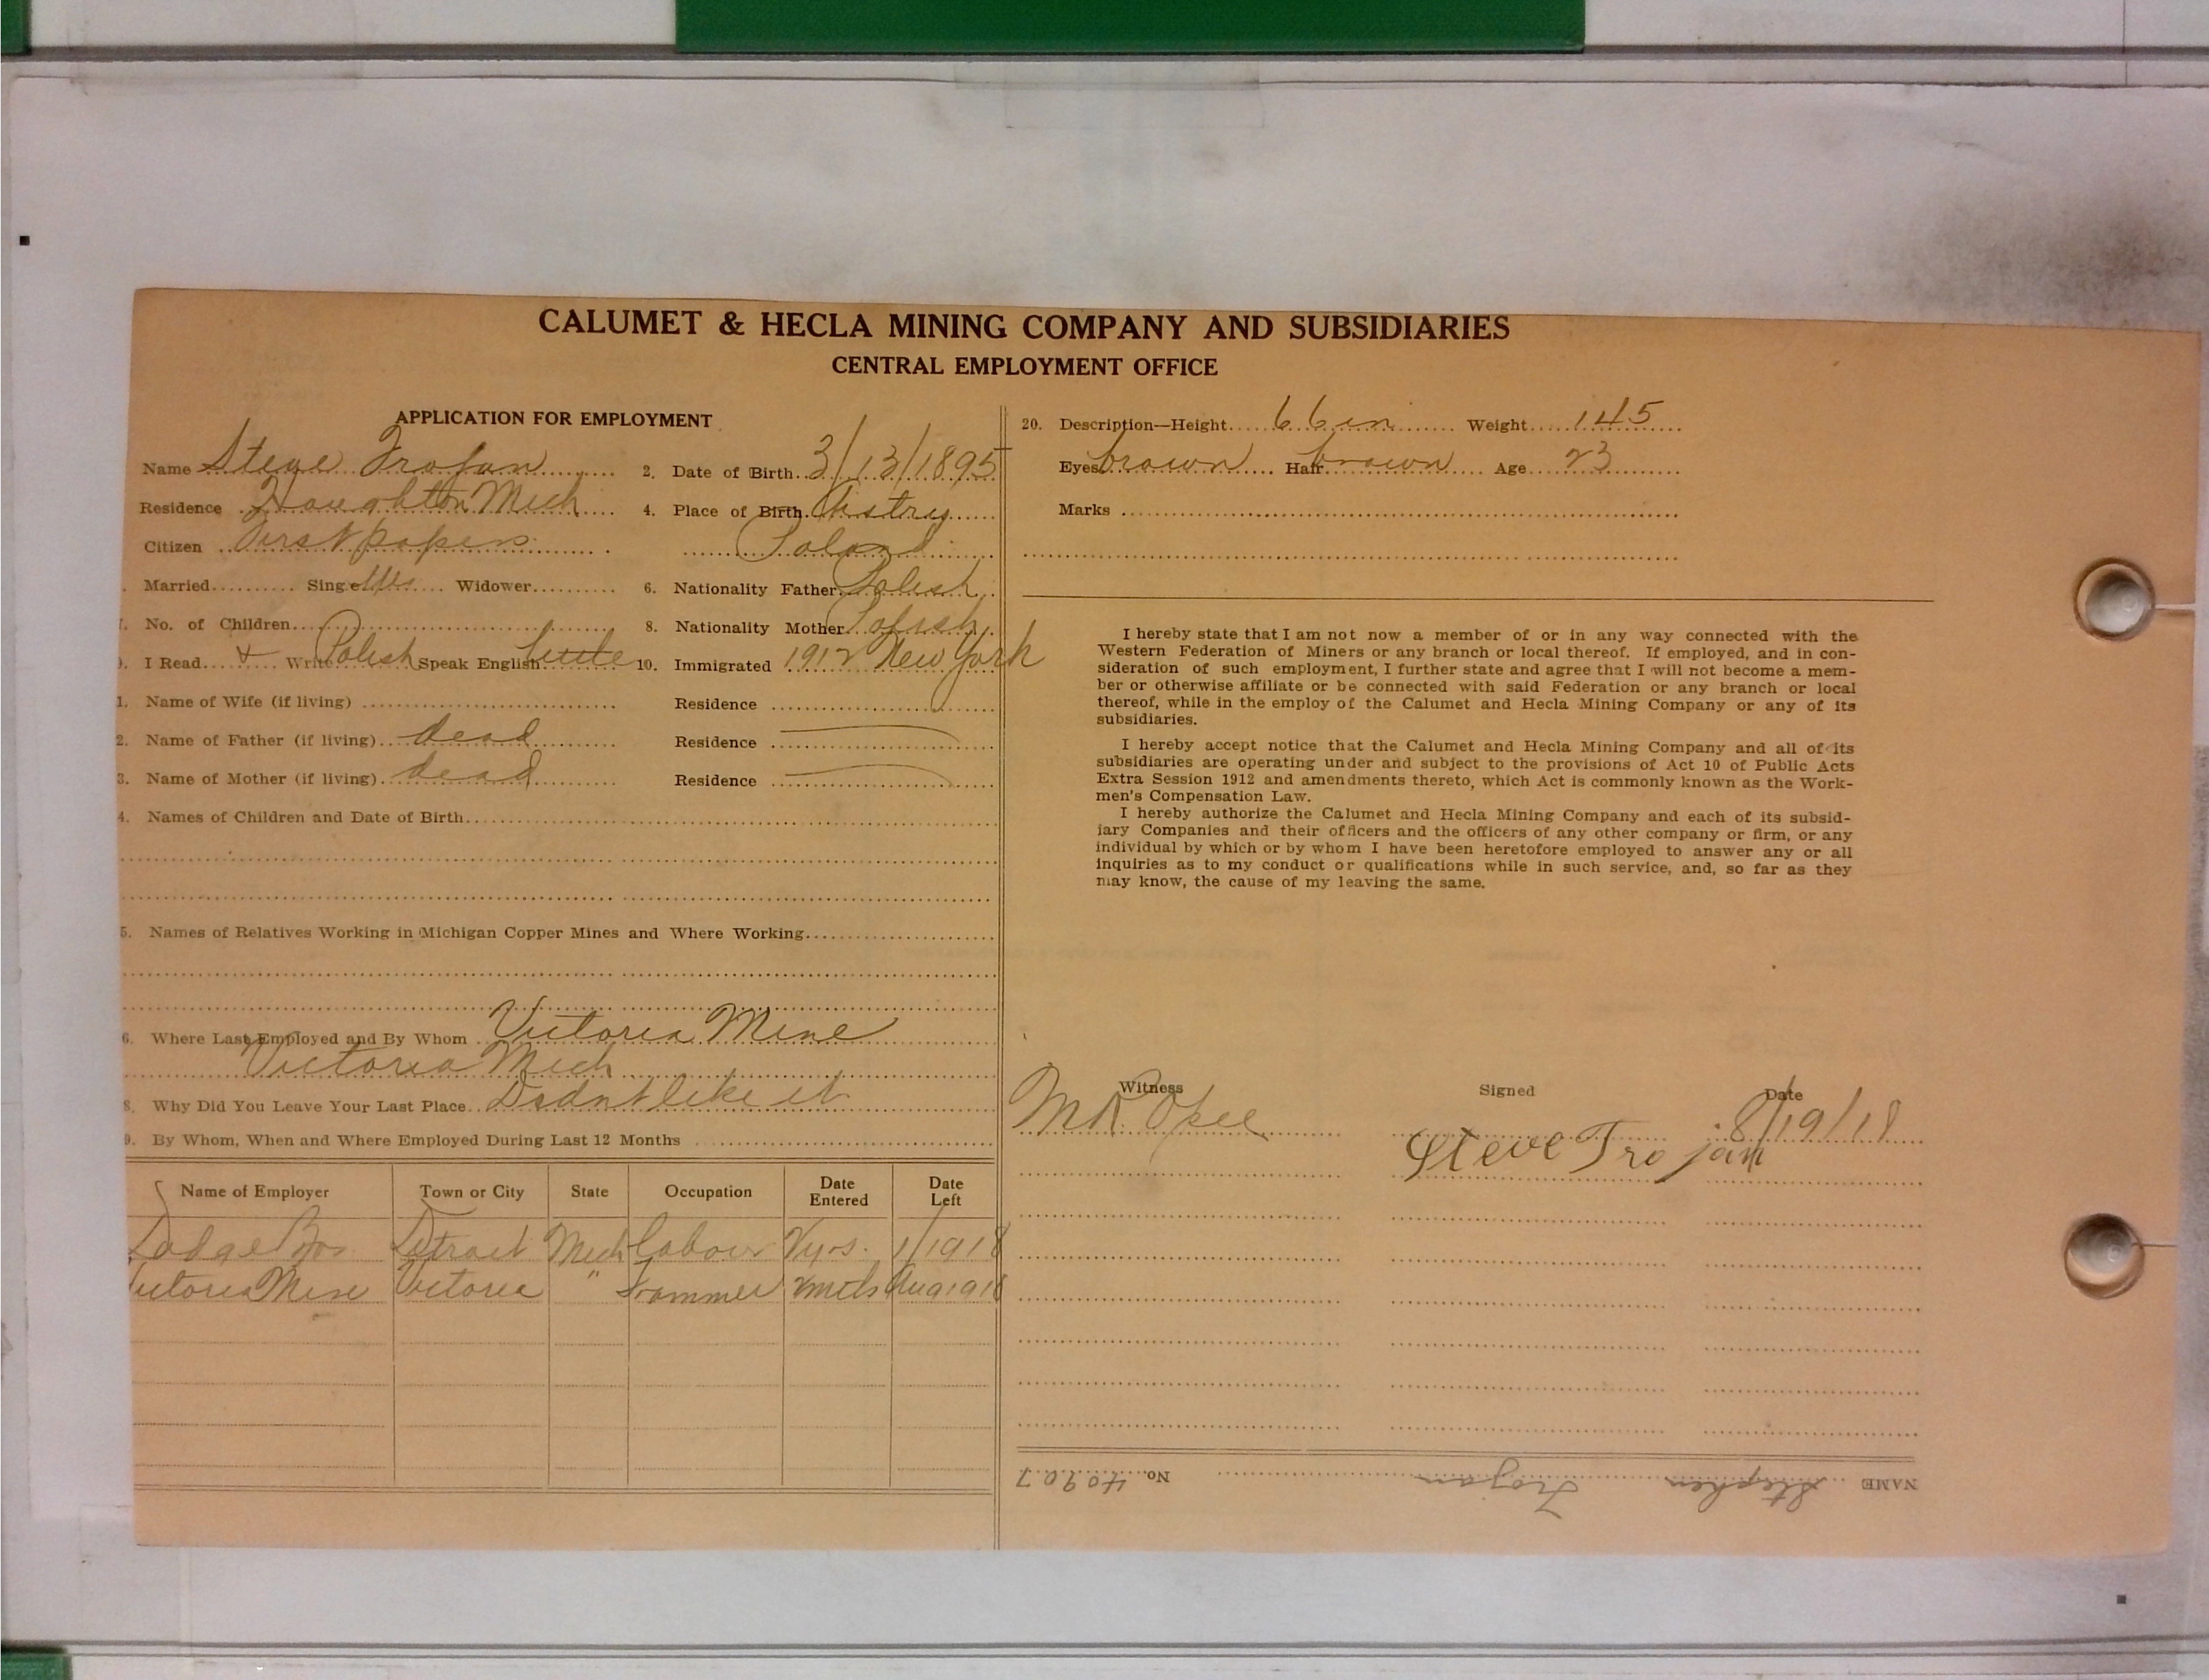 CALUMET & HECLA MINING COMPANY AND SUBSIDIARIES
CENTRAL EMPLOYMENT OFFICE
APPLICATION FOR EMPLOYMENT
Name Steve Trojan 2. Date of Birth 3/13/1895
Residence Houghton Mich 4. Place of Birth Astry
Citizen First papers Poland
Married Single Yes Widower 6. Nationality Father Polish
7. No. of Children 8. Nationality Mother Polish
9. I Read & Write Polish Speak English Little 10. Immigrated 1912 New York
1. Name of Wife (if living) Residence
2. Name of Father (if living) dead Residence
3. Name of Mother (if living) dead Residence
4. Names of Children and Date of Birth
5. Names of Relatives Working in Michigan Copper Mines and Where Working
6. Where Last Employed and By Whom Victoria Mine
Victoria Mich
8. Why Did You Leave Your Last Place Didnt like it
9. By Whom, When and Where Employed During Last 12 Months
Name of Employer Town or City State Occupation Date Entered Date Left
Dodge Bros Detroit Mich Labour 2 yrs. 1/1918
Victoria Mine Victoria " Trammer 2 mths Aug 1918
20. Description—Height 66 in Weight 145
Eyes brown Hair brown Age 23
Marks
I hereby state that I am not now a member of or in any way connected with the
Western Federation of Miners or any branch or local thereof. If employed, and in con-
sideration of such employment, I further state and agree that I will not become a mem-
ber or otherwise affiliate or be connected with said Federation or any branch or local
thereof, while in the employ of the Calumet and Hecla Mining Company or any of its
subsidiaries.
I hereby accept notice that the Calumet and Hecla Mining Company and all of its
subsidiaries are operating under and subject to the provisions of Act 10 of Public Acts
Extra Session 1912 and amendments thereto, which Act is commonly known as the Work-
men's Compensation Law.
I hereby authorize the Calumet and Hecla Mining Company and each of its subsid-
iary Companies and their officers and the officers of any other company or firm, or any
individual by which or by whom I have been heretofore employed to answer any or all
inquiries as to my conduct or qualifications while in such service, and, so far as they
may know, the cause of my leaving the same.
Witness Signed Date
8/19/18
Steve Trojan
NAME Stephen Trojan No. 40907